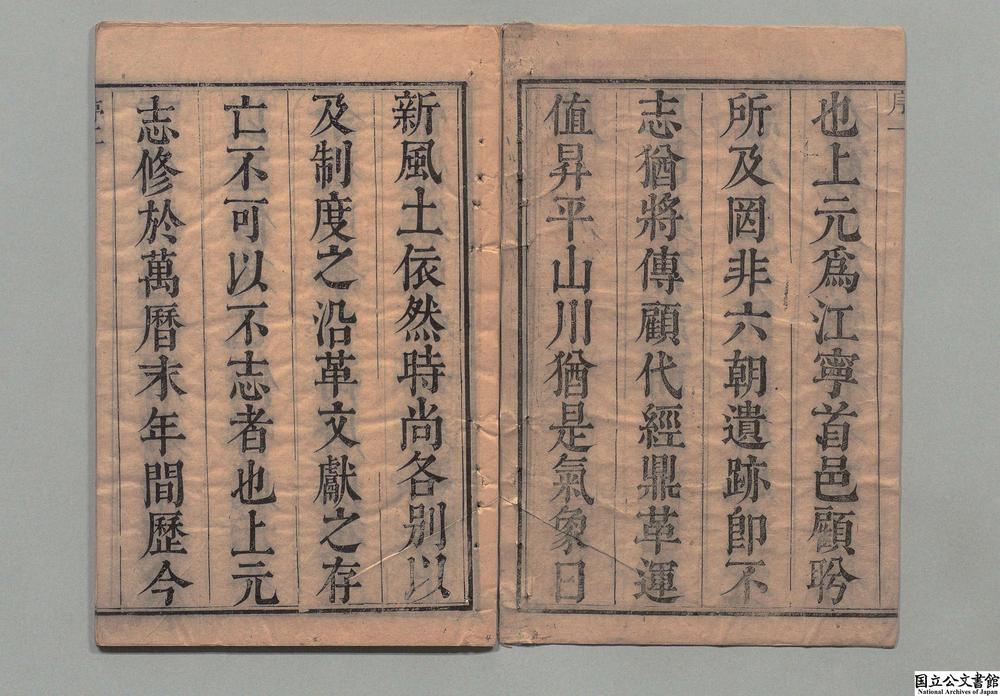 序一
也上元爲江寧首邑顧盻
所及罔非六朝遺跡卽不
志猶將傳顧代經鼎革運
值昇平山川猶是氣象日
新風土依然時尚各別以
及制度之沿革文獻之存
亡不可以不志者也上元
志修於萬曆末年間歷今
国立公文書館
National Archives of Japan